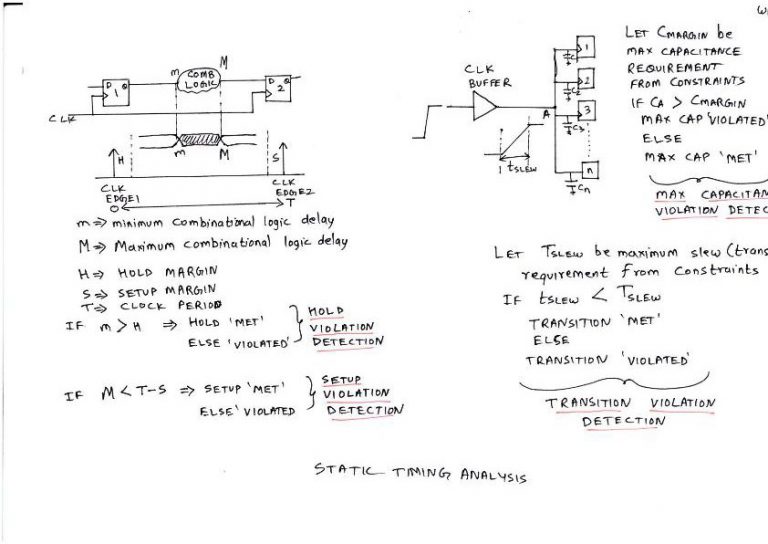 m
COMB
LOGIC
M
D Q
1
D Q
2
CLK
m M
H
S
CLK
EDGE1
CLK
EDGE2
0 T
m => minimum combinational logic delay
M => Maximum combinational logic delay
H => HOLD MARGIN
S => SETUP MARGIN
T => CLOCK PERIOD
IF m > H => HOLD 'MET'
ELSE 'VIOLATED'
HOLD
VIOLATION
DETECTION
IF M < T-S => SETUP 'MET'
ELSE 'VIOLATED
SETUP
VIOLATION
DETECTION
CLK
BUFFER
A
tSLEW
1
C1
2
C2
3
C3
n
Cn
LET CMARGIN be
MAX CAPACITANCE
REQUIREMENT
FROM CONSTRAINTS
IF CA > CMARGIN
MAX CAP 'VIOLATED'
ELSE
MAX CAP 'MET'
MAX CAPACITAN
VIOLATION DETEC
LET TSLEW be maximum slew (trans
requirement from constraints
IF tSLEW < TSLEW
TRANSITION 'MET'
ELSE
TRANSITION 'VIOLATED'
TRANSITION VIOLATION
DETECTION
STATIC TIMING ANALYSIS